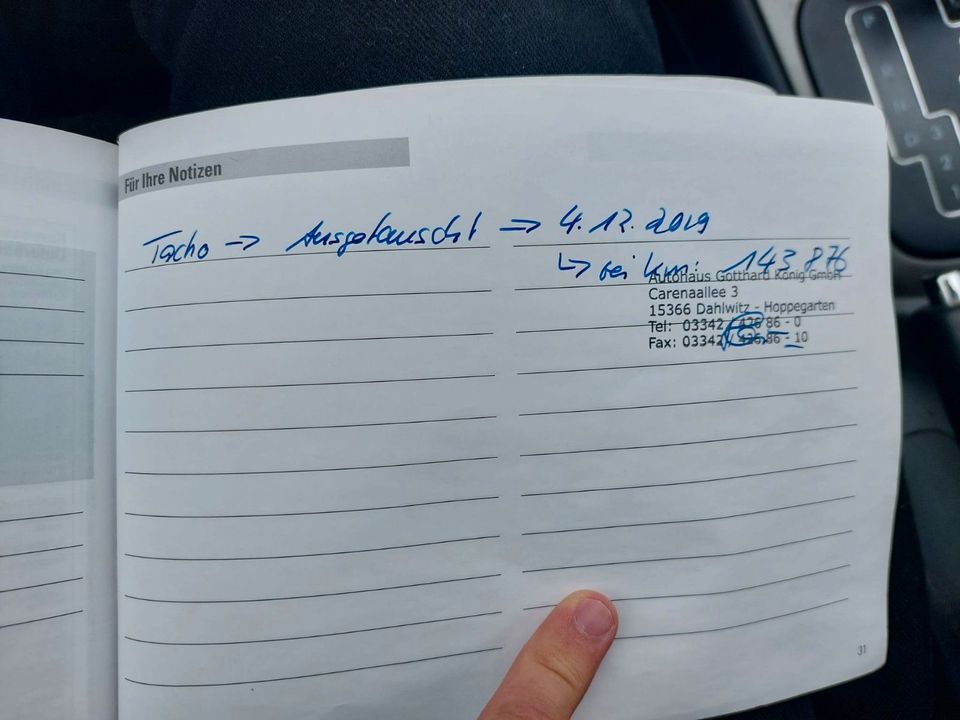 Für Ihre Notizen
Tacho -> Ausgetauscht => 4.12.2019
↳ bei km: 143.876
Autohaus Gotthard König GmbH
Carenaallee 3
15366 Dahlwitz - Hoppegarten
Tel: 03342 / 426 86 - 0
Fax: 03342 / 426 86 - 10
31
P
N
D
3
2
1